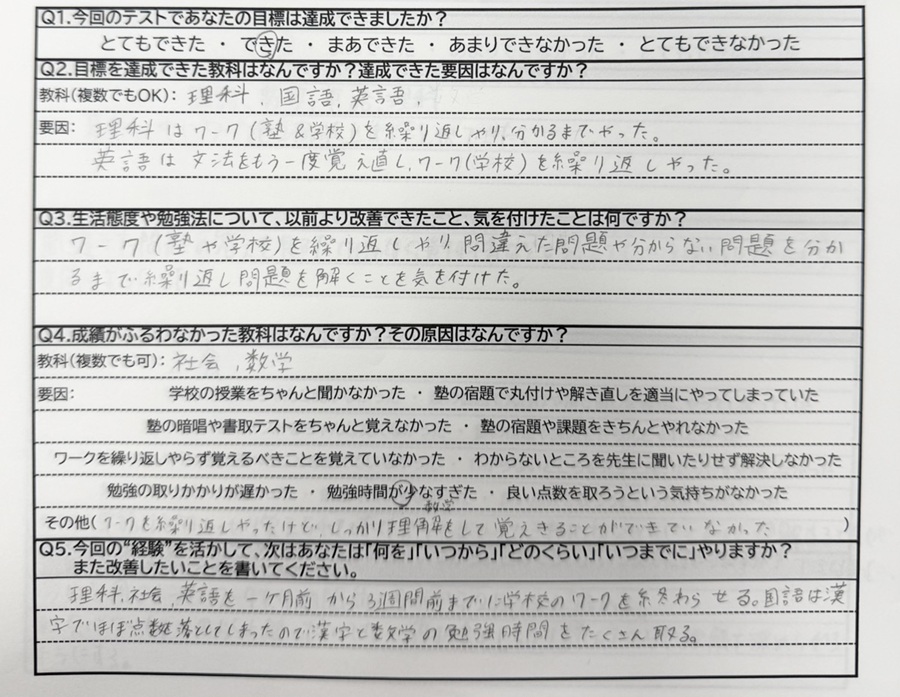 Q1.今回のテストであなたの目標は達成できましたか？
とてもできた ・ できた ・ まあできた ・ あまりできなかった ・ とてもできなかった
Q2.目標を達成できた教科はなんですか？達成できた要因はなんですか？
教科(複数でもOK)： 理科、国語、英語、
要因： 理科はワーク(塾&学校)を繰り返しやり、分かるまでやった。
英語は文法をもう一度覚え直し、ワーク(学校)を繰り返しやった。
Q3.生活態度や勉強法について、以前より改善できたこと、気を付けたことは何ですか？
ワーク(塾や学校)を繰り返しやり、間違えた問題や分からない問題を分か
るまで繰り返し問題を解くことを気を付けた。
Q4.成績がふるわなかった教科はなんですか？その原因はなんですか？
教科(複数でも可)： 社会、数学
要因： 学校の授業をちゃんと聞かなかった ・ 塾の宿題で丸付けや解き直しを適当にやってしまっていた
塾の暗唱や書取テストをちゃんと覚えなかった ・ 塾の宿題や課題をきちんとやれなかった
ワークを繰り返しやらず覚えるべきことを覚えていなかった ・ わからないところを先生に聞いたりせず解決しなかった
勉強の取りかかりが遅かった ・ 勉強時間が少なすぎた ・ 良い点数を取ろうという気持ちがなかった
数学
その他(ワークを繰り返しやったけど、しっかり理解をして覚えきることができていなかった )
Q5.今回の“経験”を活かして、次はあなたは「何を」「いつから」「どのくらい」「いつまでに」やりますか？
また改善したいことを書いてください。
理科、社会、英語を一ヶ月前から3週間前までに学校のワークを終わらせる。国語は漢
字でほぼ点数を落としてしまったので漢字と数学の勉強時間をたくさん取る。